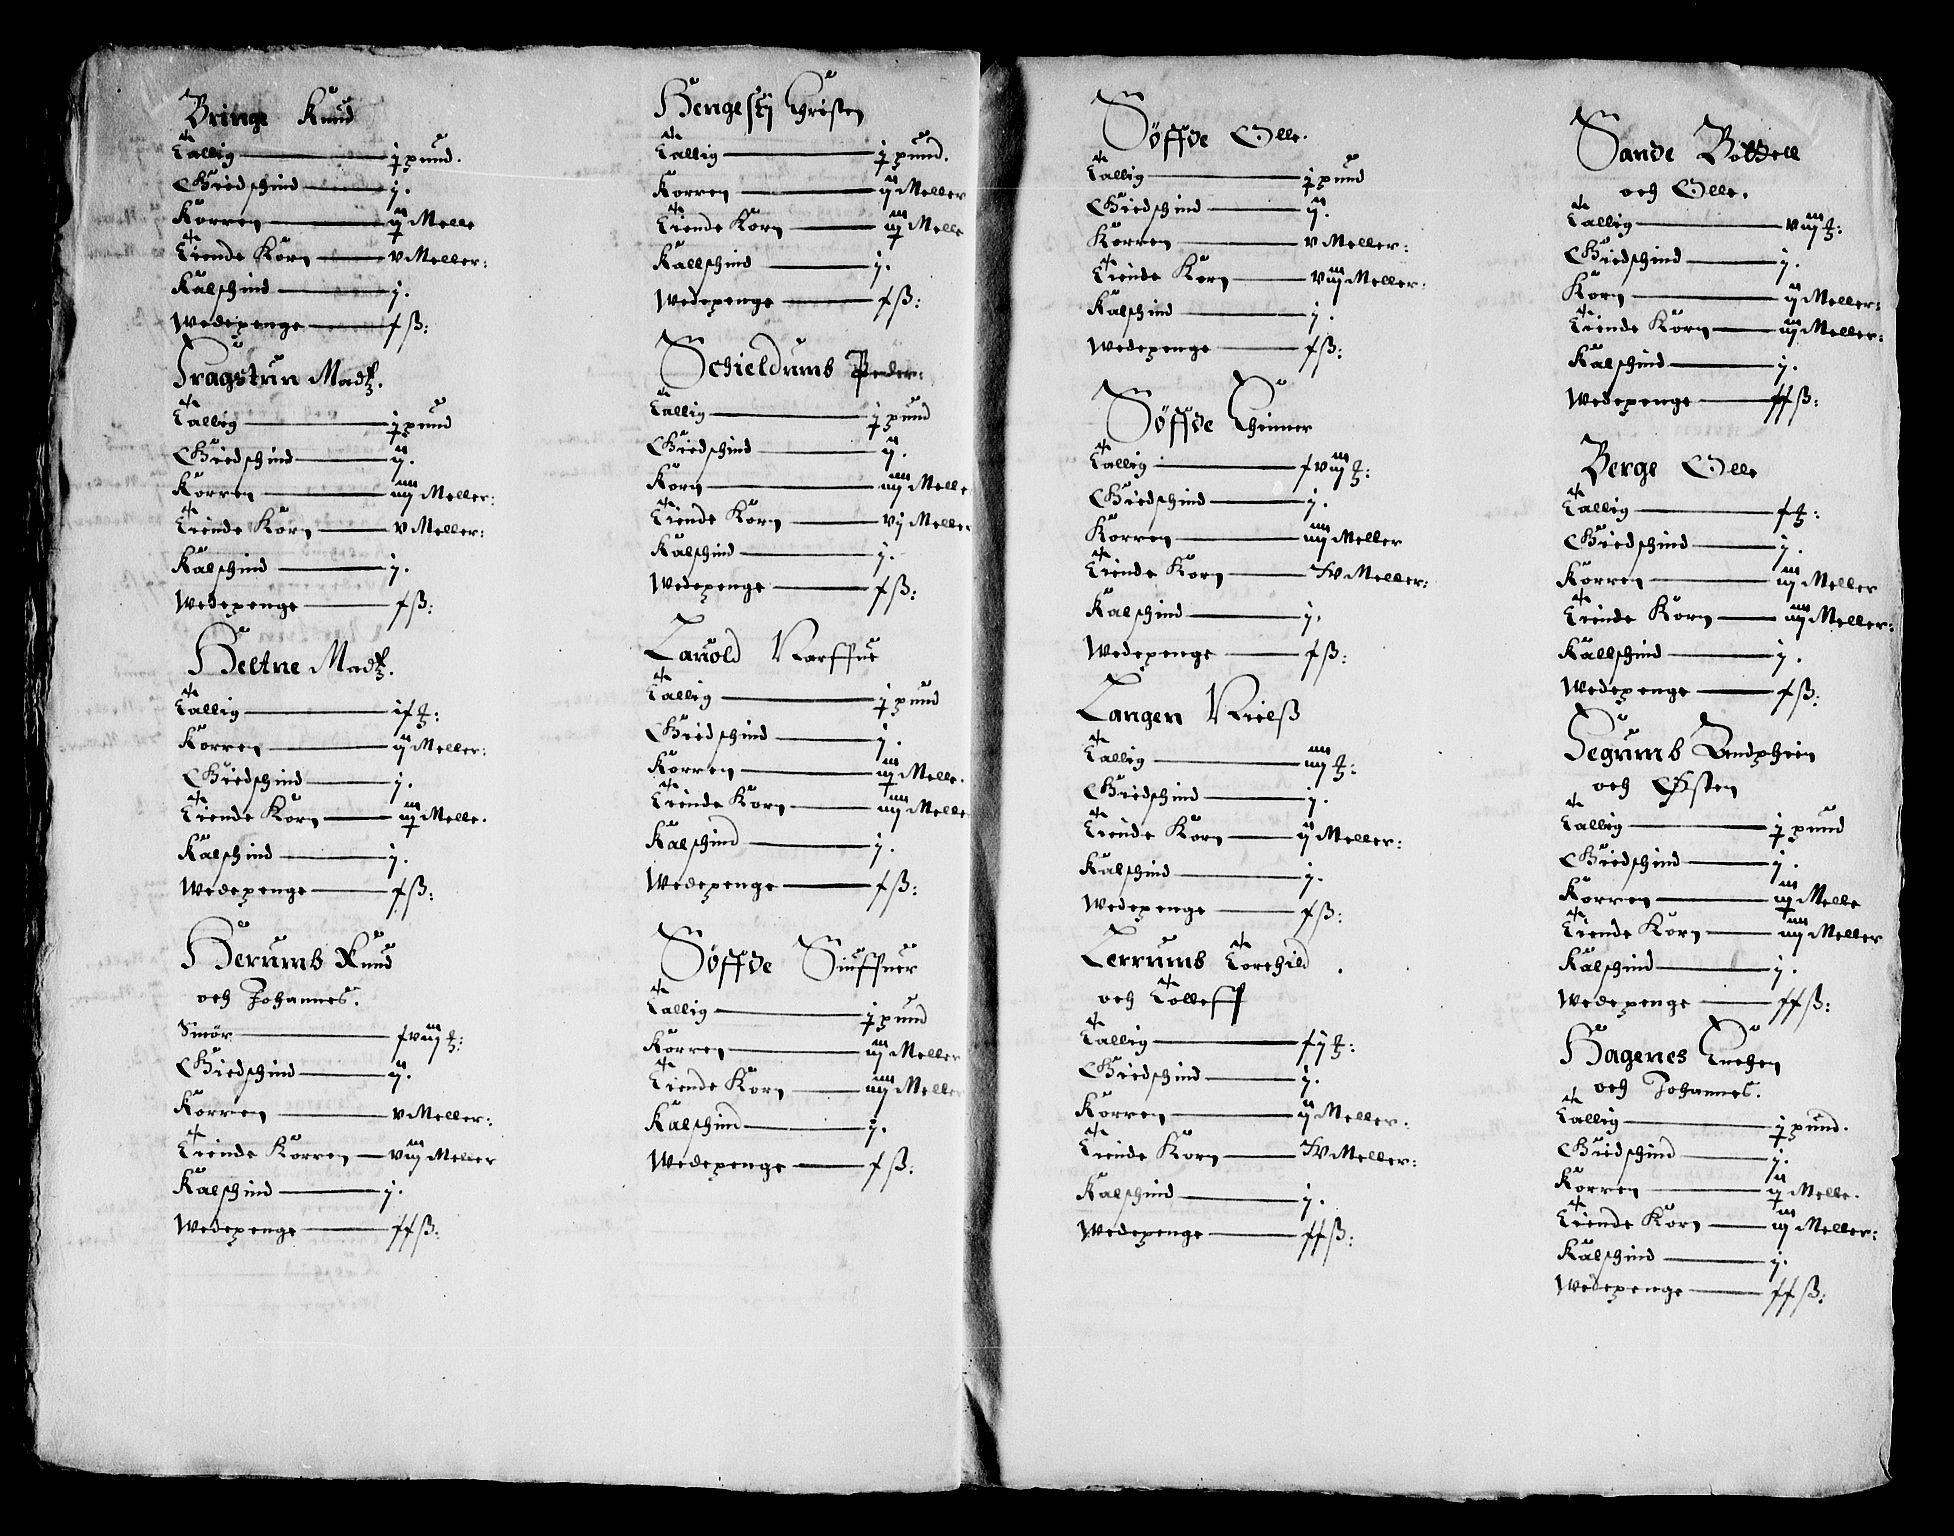 Bringe Knud
Tallig — j pund.
Giedschind — j.
Korren — ij Melle
Tiende Korn — v Meller:
Kalschind — j.
Wedepenge — j ß:
Fragstun Madtz.
Tallig — j pund
Giedschind — ij.
Korren — iiij Meller:
Tiende Korn — v Meller:
Kalschind — j.
Wedepenge — j ß:
Heltne Madtz.
Tallig
Korren — ij Meller:
Giedschind — j.
Tiende Korn — iij Melle.
Kalschind — j.
Wedepenge — j ß:
Herumb Knud
och Johannes.
Smör
Giedschind — ij.
Korren — v Meller:
Tiende Korren — viij Meller
Kalschind — j.
Wedepenge — jj ß:
Hengestj Christen
Tallig — j pund.
Korren — ij Meller
Tiende Korn — iij Melle
Kallschind — j.
Wedepenge — j ß:
Schieldumb Peder:
Tallig — j pund
Giedschind — ij.
Korn — iiij Melle
Tiende Korn — vj Meller
Kalschind — j.
Wedepenge — j ß:
Lauold Narffue
Tallig — j pund
Giedschind — j.
Korren — iij Melle.
Tiende Korn — iiij Melle
Kalschind — j.
Wedepenge — j ß:
Söffde Siuffuer
Tallig — j pund
Korren — iij Meller
Tiende Korn — iiij Meller
Kalschind — j.
Wedepenge — j ß:
Söffde Olle.
Tallig — j pund
Giedschind — ij.
Korren — v Meller:
Tiende Korn — viij Meller:
Kalschind — j.
Wedepenge — j ß:
Söffde
Tallig
Giedschind — j.
Korren — iiij Meller
Tiende Korn — Meller:
Kalschind — j.
Wedepenge — j ß:
Langen Nielß
Tallig
Giedschind — j.
Tiende Korn — ij Meller:
Kalschind — j.
Wedepenge — j ß:
Lerrumb Torchild
och Tolleff
Tallig
Giedschind — j.
Korren — ij Meller:
Tiende Korn — Meller:
Kalschind — j.
Wedepenge — jj ß:
Sande Bottell
och Olle.
Tallig
Giedschind — j.
Korn — ij Meller:
Tiende Korn — iij Meller:
Kalschind — j.
Wedepenge — jj ß:
Berge Olle
Tallig
Giedschind — j.
Korren — iij Meller
Tiende Korn — iiij Meller:
Kallschind — j.
Wedepenge — j ß:
Segumb
och Østen
Tallig — j pund
Giedschind — j.
Korren — iij Melle
Tiende Korn — iiij Meller
Kalschind — j.
Wedepenge — jj ß:
Hagenes
och Johannes.
Tallig — j pund.
Giedschind — j.
Korren — ij Melle.
Tiende Korn — iij Meller:
Kalschind — j.
Wedepenge — jj ß: